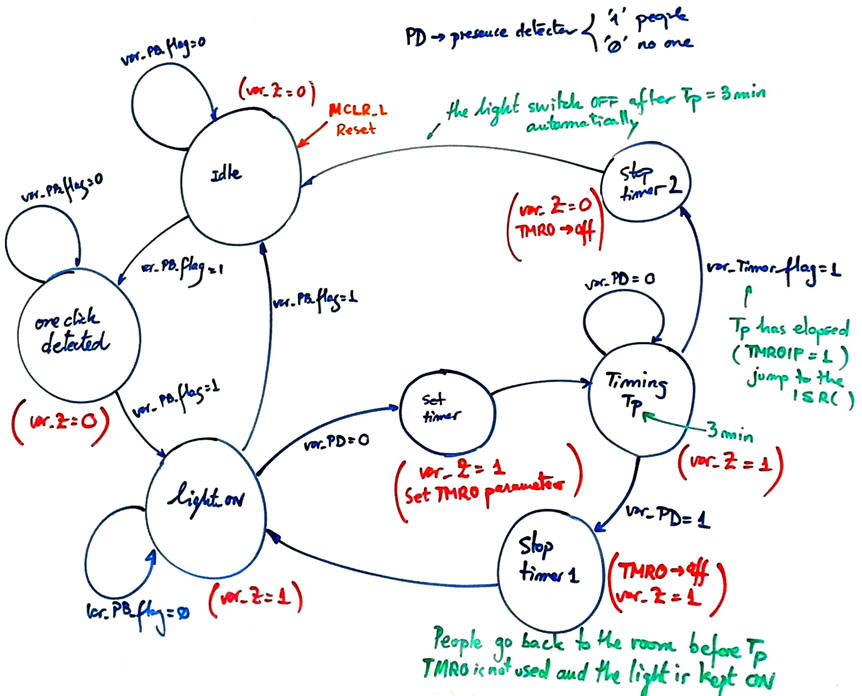 PD → presence detector { '1' people
'0' no one
var_PB_flag=0
(var_Z=0)
MCLR_L
Reset
Idle
the light switch OFF after Tp = 3 min
automatically
Stop
timer 2
(var_Z=0
TMR0→off)
var_PB_flag=0
var_PB_flag=1
one click
detected
(var_Z=0)
var_PB_flag=1
var_PB_flag=1
var_PD=0
var_Timer_flag=1
Tp has elapsed
(TMR0IF=1)
jump to the
ISR()
Timing
Tp
3 min
(var_Z=1)
Set
timer
var_PD=0
(var_Z=1
Set TMR0 parameter)
light ON
var_PB_flag=0
(var_Z=1)
var_PD=1
Stop
timer 1
(TMR0→off
var_Z=1)
People go back to the room before Tp
TMR0 is not used and the light is kept ON